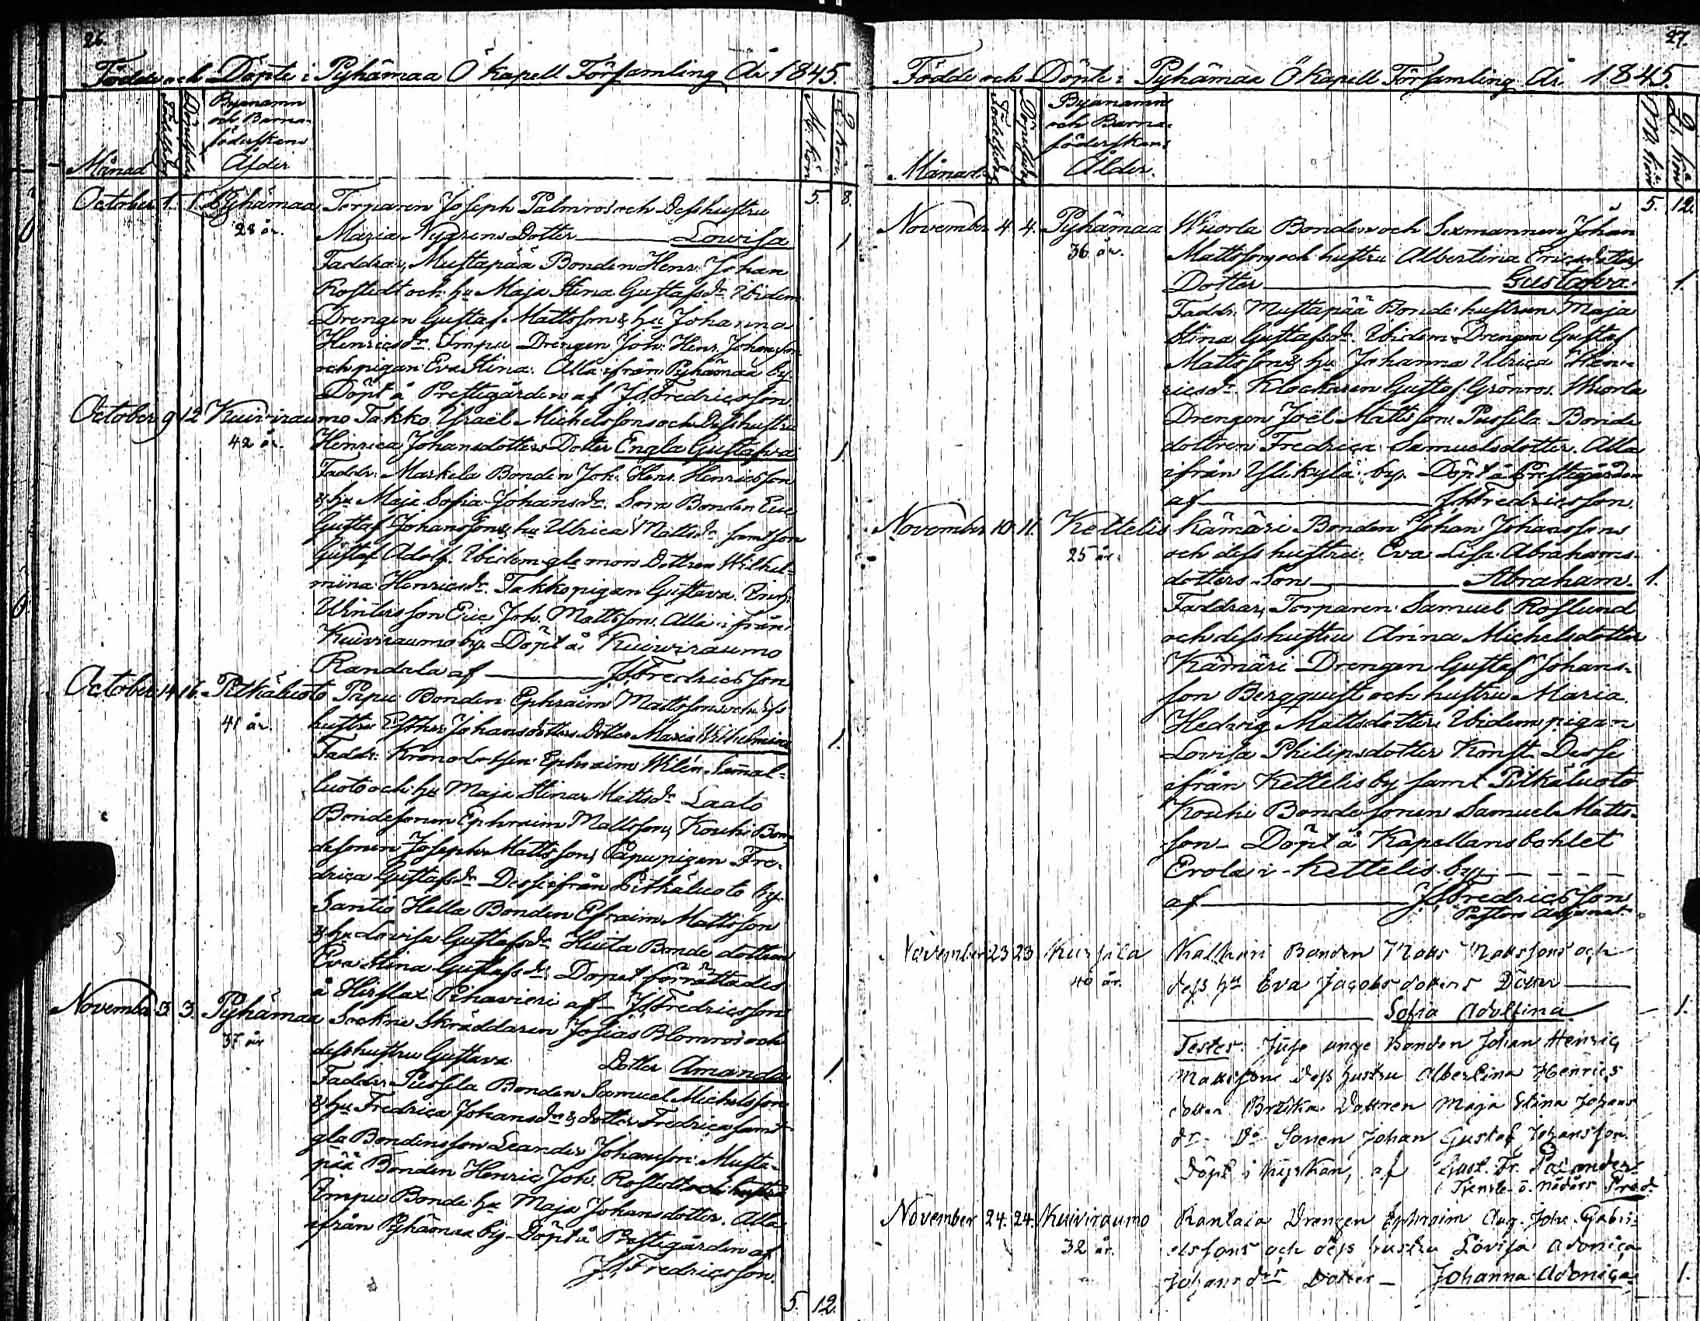 26.
Födde och Döpte i Pyhämaa Ö Kapell Församling År 1845.
Månad
Byanamn
och Barna-
föderskans
Ålder
M. kön
Q. kön
5. 8.
October 1. 1. Pyhämaa Torparen Joseph Palmros och Desshustru
28 år. Maria Nygrens Dotter Lowisa 1
Faddrar, Mustapää Bonden Henr. Johan
Rostedt och hu Maja Stina Gustafsdr Ibidem
Drengen Gustaf Mattsson & hu Johanna
Henricsdr. Impu Drengen Joh. Henr. Johansson
och pigan Eva Stina. Alla ifrån Pyhämaa by
Döpt å Prestgården af J. Fredricsson
October 9 12 Kuiviraumo Takko Israël Michelssons och Desshustru
42 år. Henrica Johansdotters Dotter Engla Gustafva 1
Faddr. Markela Bonden Joh. Henr. Henricsson
& hu Maja Sofia Johansdr. Sora Bonden Eric
Gustaf Johansson & hu Ulrica Mattsdr samt son
Gustaf Adolf. Ibidem gla mors Dottren Wilhel-
mina Henricsdr. Takko pigan Gustava
son Eric Joh. Mattsson. Alla ifrån
Kuiviraumo by. Döpt å Kuiwiraumo
Randala af J. Fredricsson
October 14 16. Pitkäluoto Papu Bonden Ephraim Mattssons och dess
41 år. hustru Esther Johansdotters Dotter Maria Wilhelmina 1.
Faddr: Krono Lotsen Ephraim Wilén, Sammal-
luoto och hu Maja Stina Mattsdr Laato
Bondesonen Ephraim Mattsson, Kouhi Bon-
desonen Joseph Mattsson, Papu pigan Fre-
drica Gustafsdr Desse ifrån Pitkäluoto by.
Santio Hella Bonden Efraim Mattsson
& hu Lovisa Gustafsdr Heuta Bonde dottren
Eva Stina Gustafsdr. Dopet förrättades
å af J. Fredricsson
November 3. 3. Pyhämaa Sockne Skräddaren Josias Blomros och
37 år desshustru Gustava Dotter Amanda 1.
Faddr: Pussila Bonden Samuel Michelsson
& hu Fredrica Johansdr & dotter Fredrica samt
gla Bondens son Leander Johansson. Musta-
pää Bonden Henric Joh. Rostedt
Impu Bonde hu Maja Johansdotter. Alla
ifrån Pyhämaa by. Döpt å Prestgården af
J. Fredricsson.
5. 12.
27.
Födde och Döpte i Pyhämaa Ö Kapell Församling År 1845.
Månad.
Byanamn
och Barna-
föderskans
Ålder.
M. kön
Q. kön
5. 12.
November 4. 4. Pyhämaa Wuorla Bonden och Sexmannen Johan
36 år. Mattsson och hustru Albertina Ericsdotters
Dotter Gustafva. 1.
Faddr: Mustapää Bonde hustrun Maja
Stina Gustafsdr. Ibidem Drengen Gustaf
Mattsson & hu Johanna Ulrica Hen-
ricsdr. Klockaren Gustaf Grönros. Wuorla
Drengen Joël Mattsson. Pussila Bonde
dottren Fredrica Samuelsdotter. Alla
ifrån Ylikylä by. Döpt å Prestgården
af J. Fredricsson.
November 10. 11. Kettelis Kämäri Bonden Johan Johanssons
25 år. och dess hustru Eva Lisa Abrahams-
dotters Son Abraham. 1.
Faddrar, Torparen Samuel Roslund
och desshustru Anna Michelsdotter
Kämäri Drengen Gustaf Johans-
son Bergquist och hustru Maria
Hedvig Mattsdotter. Ibidem pigan
Lovisa Philipsdotter Konst. Desse
ifrån Kettelis by samt Pitkäluoto
Kouhi Bonde sonen Samuel Matts-
son. Döpt å Kapellans bohlet
Erola i Kettelis by
af J. Fredricsson
Pastors Adjunct.
November 23 23 Bonden Matts Mattssons och
40 år. dess hu Eva Jacobsdotters Dotter
Sofia Adolfina 1.
Testes: unge Bonden Johan Henric
Mattsson dess hustru Albertina Henrics
dotter Dottren Maja Stina Johans
dr. Do Sonen Johan Gustaf Johansson.
Döpt i kyrkan, af Gust. Fr. Palander
November 24. 24. Kuiviraumo Rantala Drengen Ephraim Aug. Joh. Gabri-
32 år. elssons och dess hustru Lovisa Adonica
Johansdrs Dotter Johanna Adonica. 1.